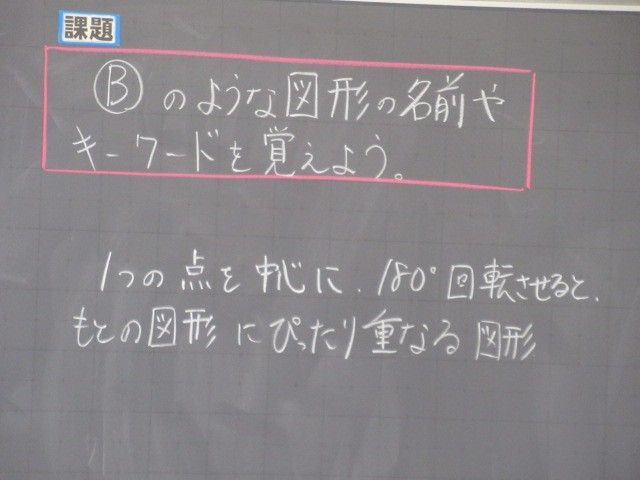 課題
Ⓑのような図形の名前や
キーワードを覚えよう。
1つの点を中心に、180°回転させると、
もとの図形にぴったり重なる図形